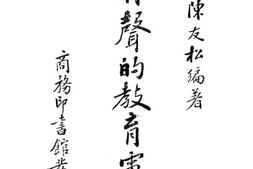 陳友松編著
有聲的教育電
商務印書館發